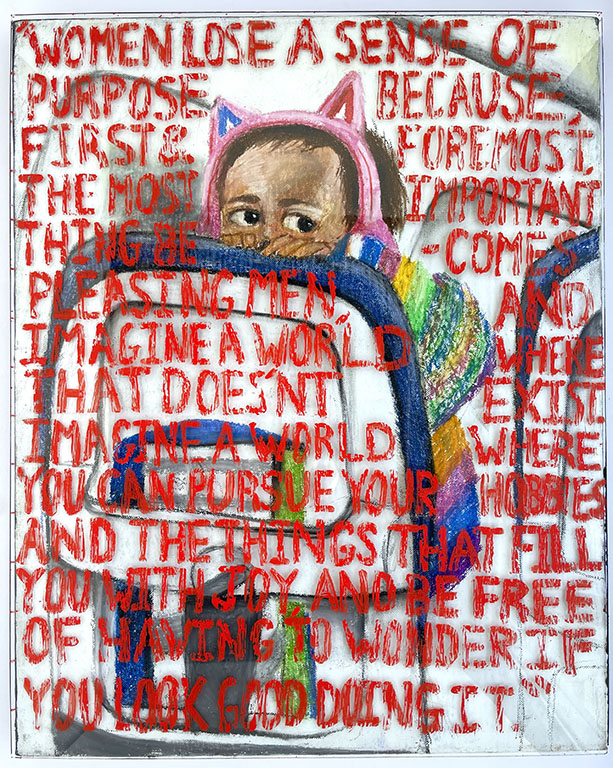 "WOMEN LOSE A SENSE OF
PURPOSE BECAUSE,
FIRST & FOREMOST,
THE MOST IMPORTANT
THING BE-COMES
PLEASING MEN, AND
IMAGINE A WORLD WHERE
THAT DOES'NT EXIST
IMAGINE A WORLD WHERE
YOU CAN PURSUE YOUR HOBBIES
AND THE THINGS THAT FILL
YOU WITH JOY AND BE FREE
OF HAVING TO WONDER IF
YOU LOOK GOOD DOING IT."